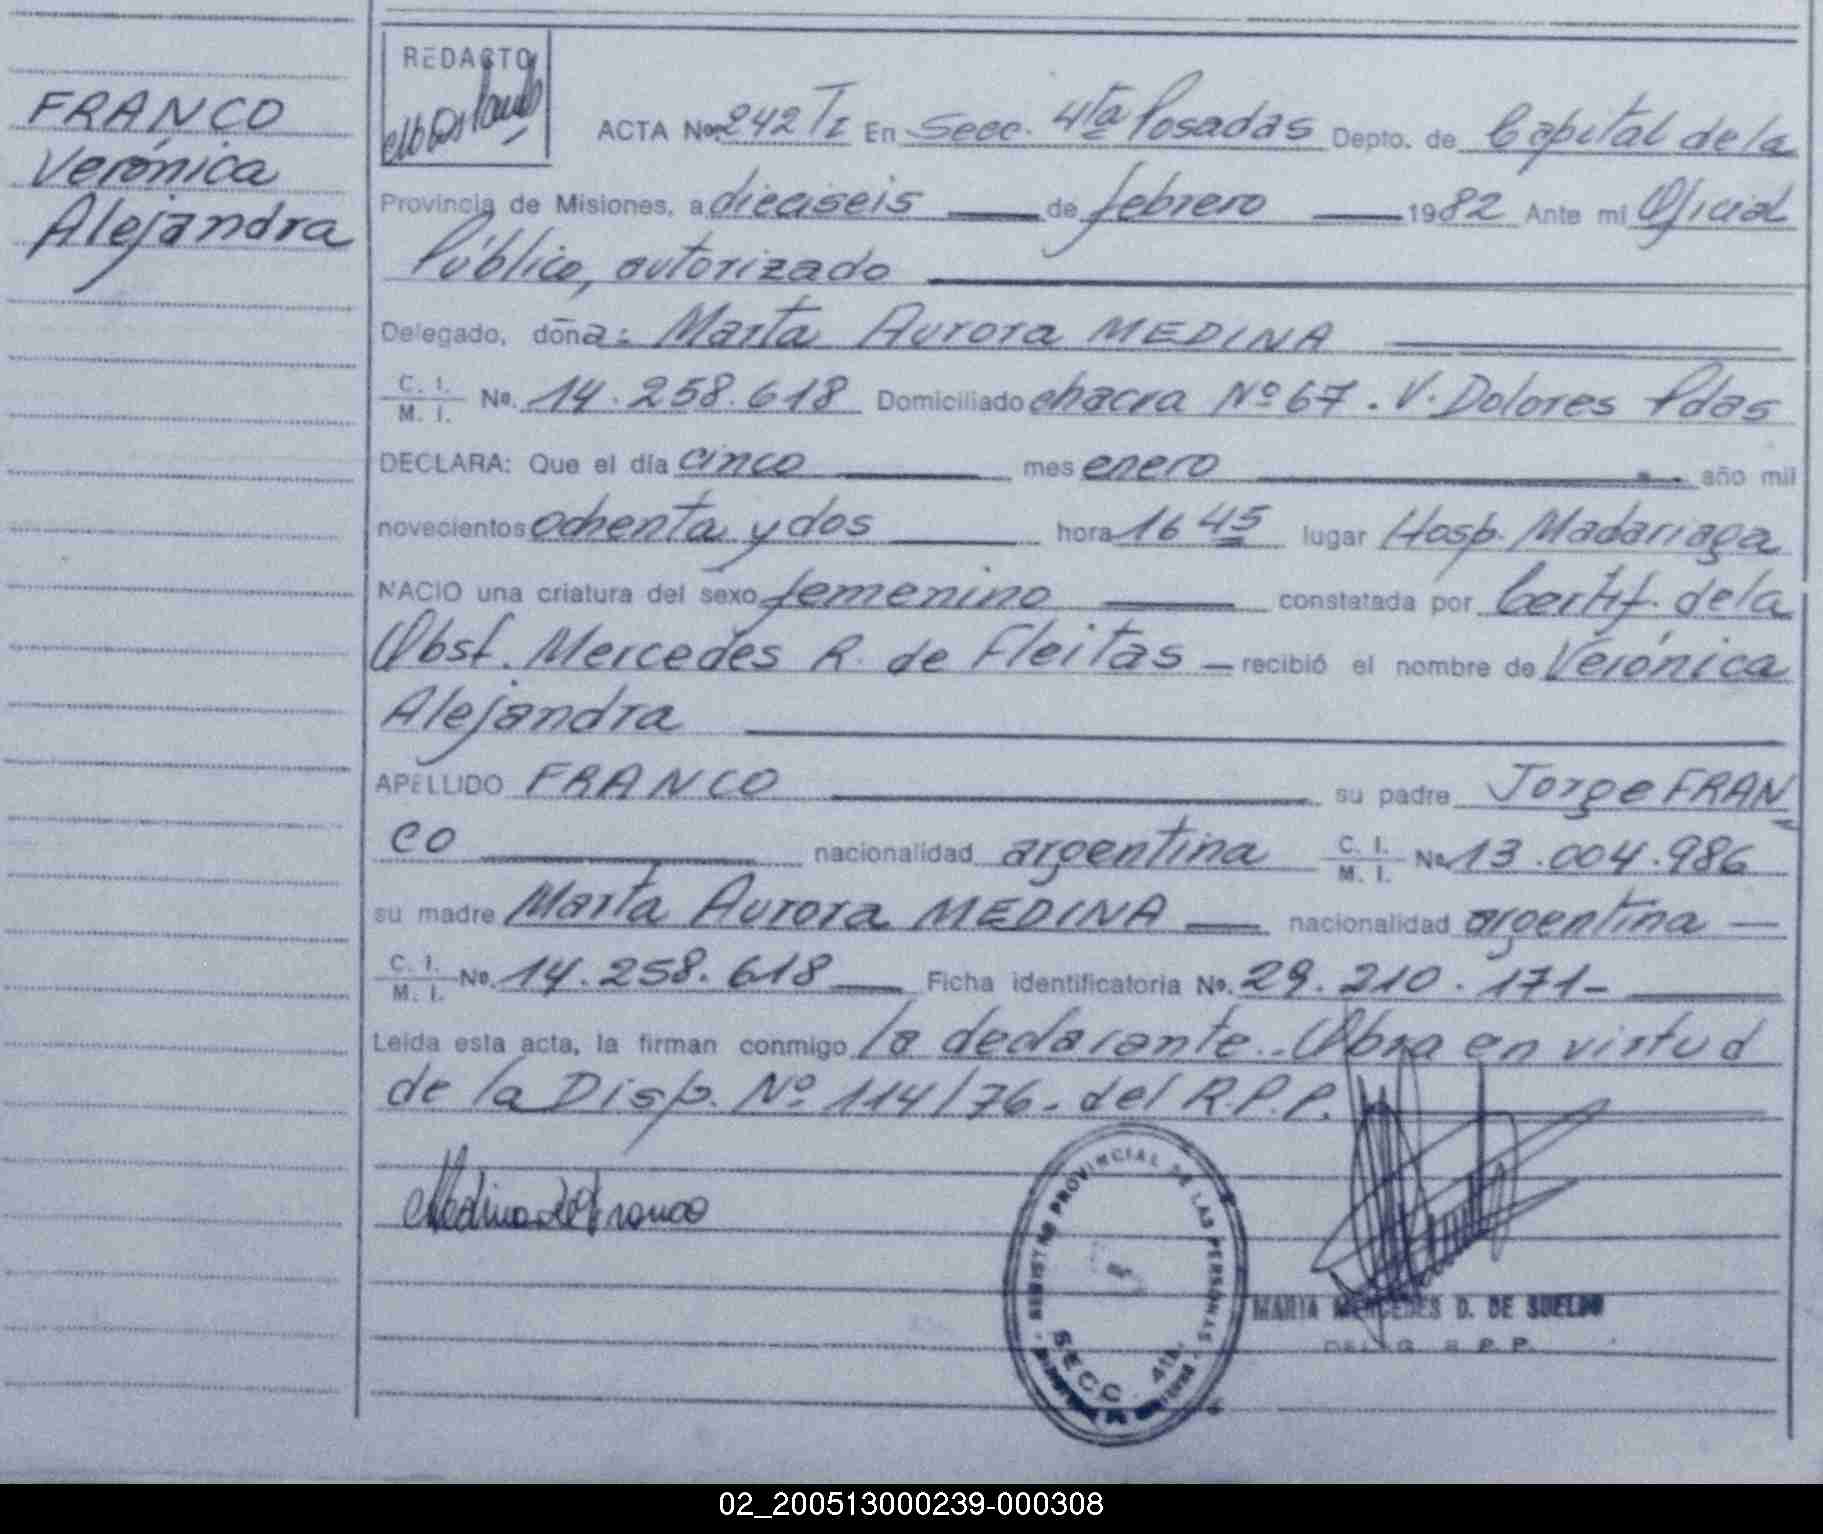 FRANCO
Verónica
Alejandra
REDACTO
ACTA No. 242 TI En Secc. 4ta Posadas Depto. de Capital de la
Provincia de Misiones, a dieciseis de febrero 1982 Ante mi Oficial
Público, autorizado
Delegado, doña: Marta Aurora MEDINA
C. I. M. I. No. 14.258.618 Domiciliado chacra Nº 67. V. Dolores Pdas
DECLARA: Que el día cinco mes enero año mil
novecientos ochenta y dos hora 16 45 lugar Hosp. Madariaga
NACIO una criatura del sexo femenino constatada por Certif. de la
Obst. Mercedes R. de Fleitas recibió el nombre de Verónica
Alejandra
APELLIDO FRANCO su padre Jorge FRAN
CO nacionalidad argentina C. I. M. I. No. 13.004.986
su madre Marta Aurora MEDINA nacionalidad argentina
C. I. M. I. No. 14.258.618 Ficha identificatoria No. 29.210.171-
Leida esta acta, la firman conmigo la declarante. Obra en virtud
de la Disp. Nº 114/76. del R.P.P.
Medina de Franco
REGISTRO PROVINCIAL DE LAS PERSONAS
SECC. 4ta.
MARIA MERCEDES D. DE SUELDO
DELEG. R. P. P.
02_200513000239-000308